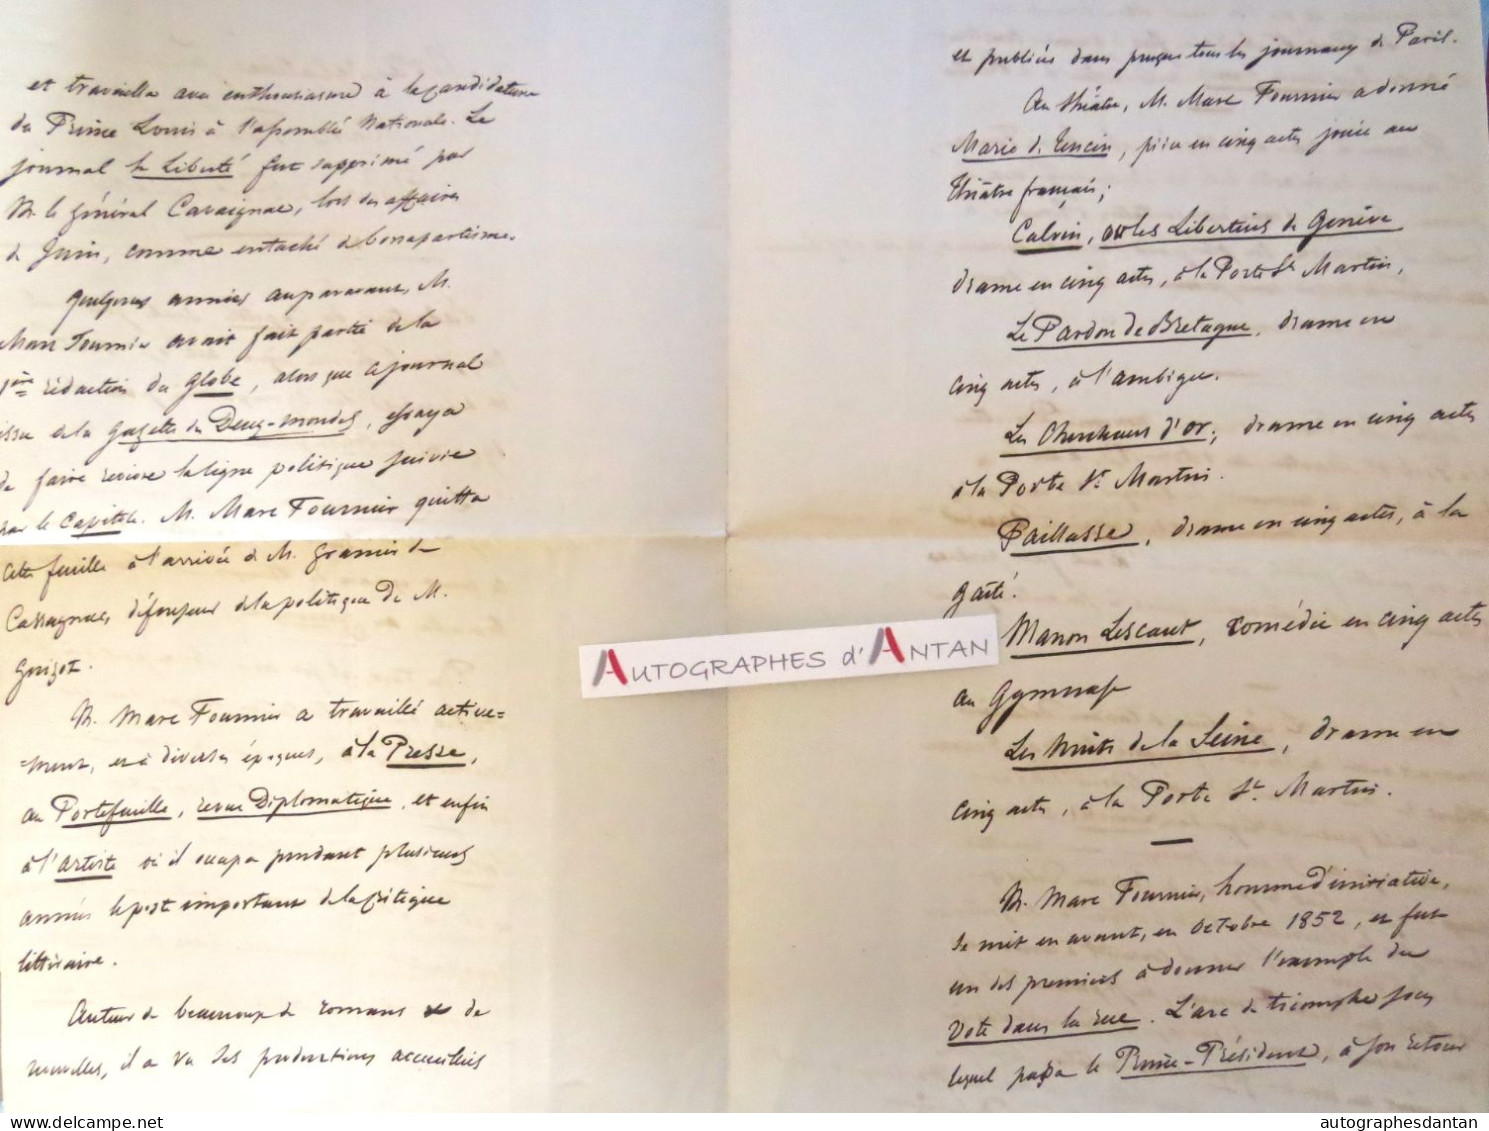 et travailla avec enthousiasme à la candidature
du Prince Louis à l'assemblée Nationale. Le
journal la Liberté fut supprimé par
M. le général Cavaignac, lors des affaires
de Juin, comme entaché de bonapartisme.
Quelques années auparavant, M.
Marc Fournier avait fait partie de la
1ère rédaction du Globe, alors que ce journal
issu de la Gazette des Deux-mondes, essaya
de faire revivre la ligne politique suivie
par le Capitole. M. Marc Fournier quitta
cette feuille à l'arrivée de M. Granier de
Cassagnac, défenseur de la politique de M.
Guizot.
M. Marc Fournier a travaillé active=
=ment, et à diverses époques, à la Presse,
au Portefeuille, revue Diplomatique, et enfin
à l'artiste où il occupa pendant plusieurs
années le post important de la critique
littéraire.
Auteur de beaucoup de romans et de
nouvelles, il a vu ses productions accueillies
et publiés dans presque tous les journaux de Paris.
Au théâtre, M. Marc Fournier a donné
Marie de Tencin, pièce en cinq actes jouée au
Théâtre français;
Calvin, ou les Libertins de Genève
drame en cinq actes, à la Porte St Martin,
Le Pardon de Bretagne, drame en
cinq actes, à l'ambigu.
Les Chercheurs d'or, drame en cinq actes
à la Porte St Martin.
Paillasse, drame en cinq actes, à la
gaité.
Manon Lescaut, comédie en cinq actes
au Gymnase
Les Nuits de la Seine, drame en
cinq actes, à la Porte St. Martin.
M. Marc Fournier, homme d'initiative,
se mit en avant, en octobre 1852, et fut
un des premiers à donner l'exemple du
Vote dans la rue. L'arc de triomphe sous
lequel passa le Prince-Président, à son retour
AUTOGRAPHES d'ANTAN
delcampe.net
autographesdantan